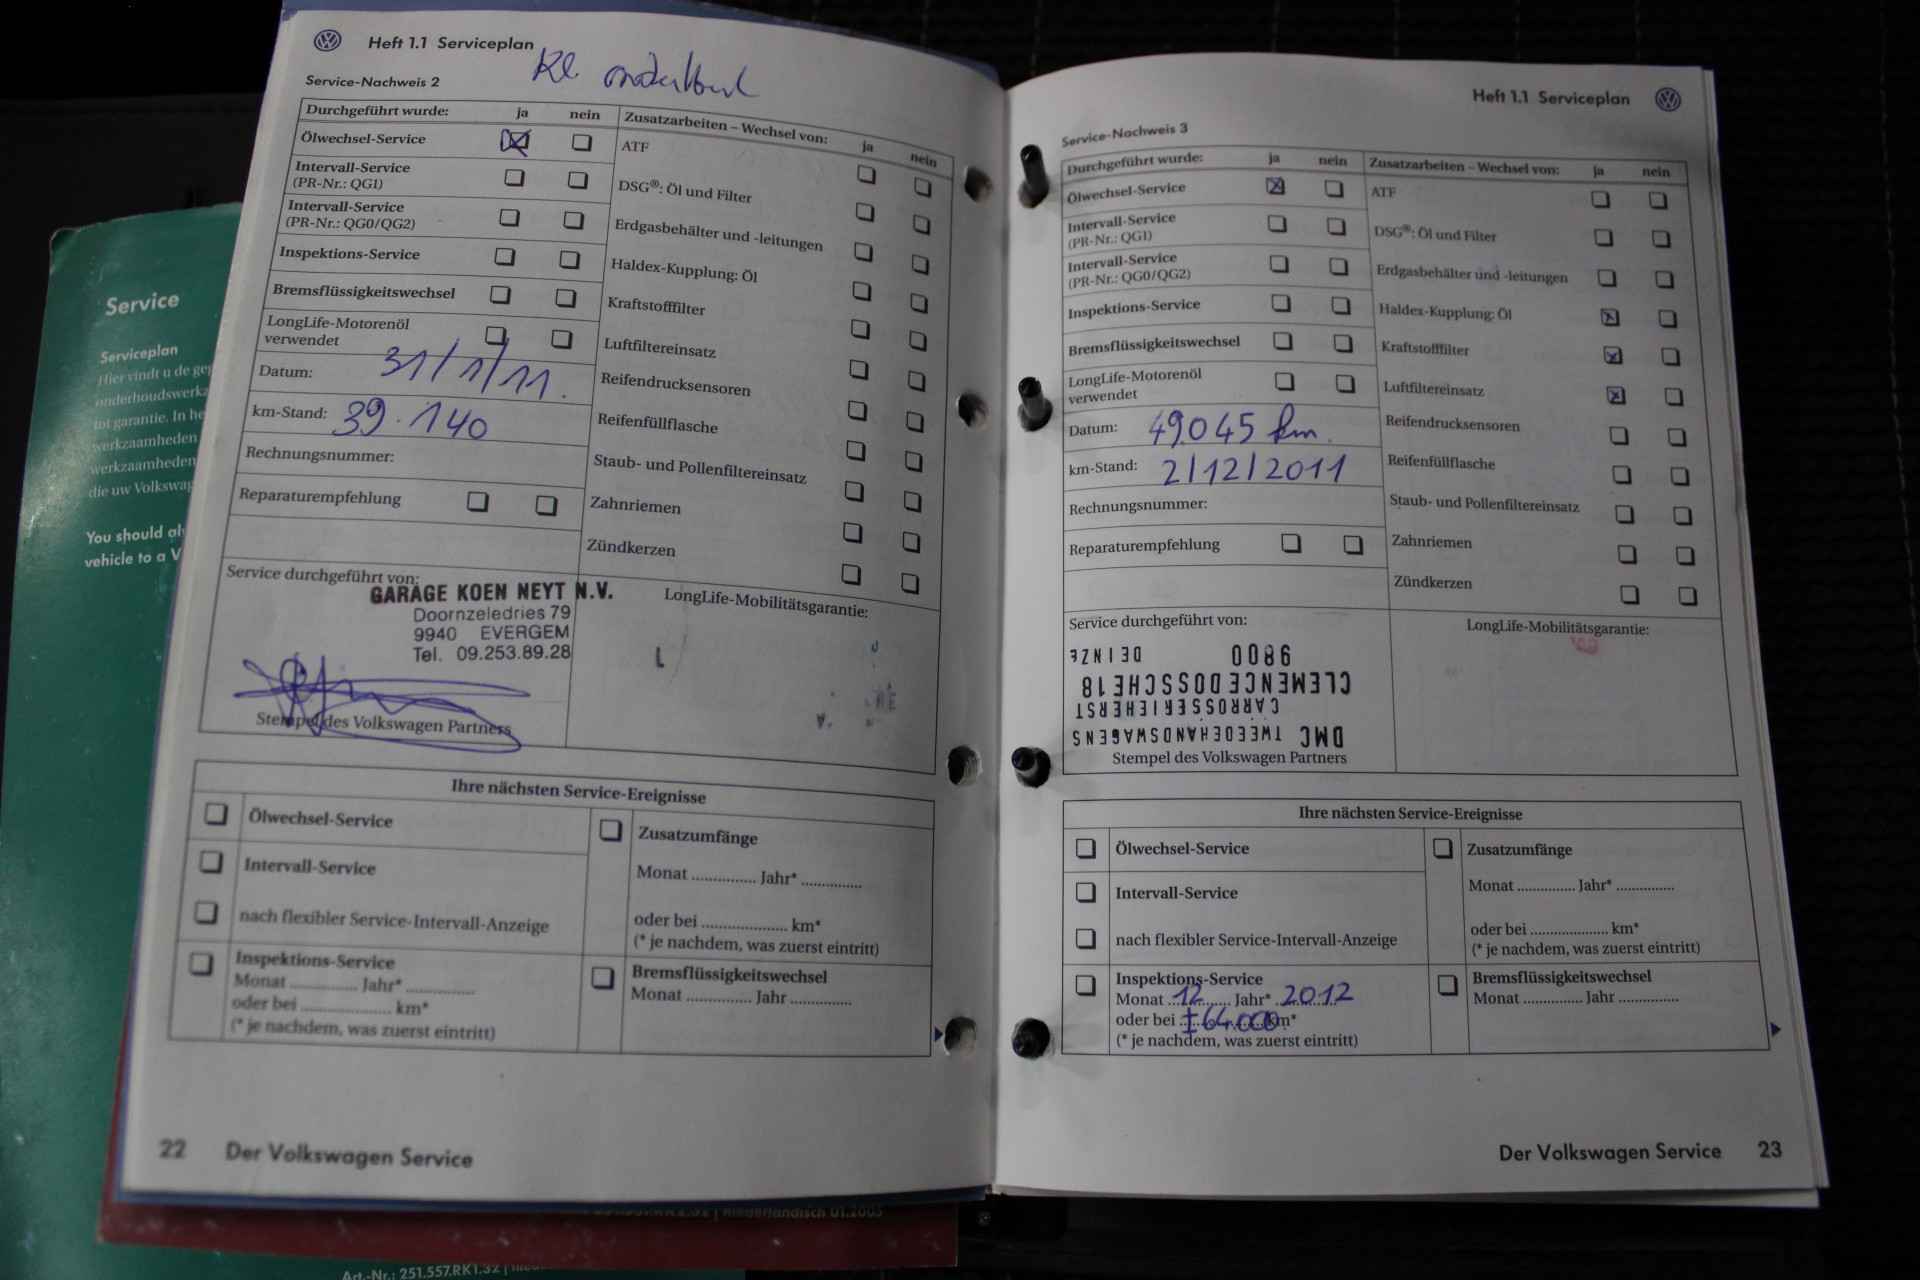 Heft 1.1 Serviceplan
Kl. onderhoud
Service-Nachweis 2
Durchgeführt wurde: ja nein
Zusatzarbeiten – Wechsel von: ja nein
Ölwechsel-Service
ATF
Intervall-Service
(PR-Nr.: QG1)
DSG®: Öl und Filter
Intervall-Service
(PR-Nr.: QG0/QG2)
Erdgasbehälter und -leitungen
Inspektions-Service
Haldex-Kupplung: Öl
Bremsflüssigkeitswechsel
Kraftstofffilter
LongLife-Motorenöl
verwendet
Luftfiltereinsatz
Datum: 31/1/11.
Reifendrucksensoren
km-Stand: 39.140
Reifenfüllflasche
Rechnungsnummer:
Staub- und Pollenfiltereinsatz
Reparaturempfehlung
Zahnriemen
Zündkerzen
Service durchgeführt von:
GARAGE KOEN NEYT N.V.
Doornzeledries 79
9940 EVERGEM
Tel. 09.253.89.28
Stempel des Volkswagen Partners
LongLife-Mobilitätsgarantie:
Ihre nächsten Service-Ereignisse
Ölwechsel-Service
Intervall-Service
nach flexibler Service-Intervall-Anzeige
Inspektions-Service
Monat ................ Jahr* ................
oder bei ...................... km*
(* je nachdem, was zuerst eintritt)
Zusatzumfänge
Monat ................ Jahr* ...............
oder bei ...................... km*
(* je nachdem, was zuerst eintritt)
Bremsflüssigkeitswechsel
Monat ................ Jahr ...............
22 Der Volkswagen Service
Heft 1.1 Serviceplan
Service-Nachweis 3
Durchgeführt wurde: ja nein
Zusatzarbeiten – Wechsel von: ja nein
Ölwechsel-Service
ATF
Intervall-Service
(PR-Nr.: QG1)
DSG®: Öl und Filter
Intervall-Service
(PR-Nr.: QG0/QG2)
Erdgasbehälter und -leitungen
Inspektions-Service
Haldex-Kupplung: Öl
Bremsflüssigkeitswechsel
Kraftstofffilter
LongLife-Motorenöl
verwendet
Luftfiltereinsatz
Datum: 49045 km.
Reifendrucksensoren
km-Stand: 2/12/2011
Reifenfüllflasche
Rechnungsnummer:
Staub- und Pollenfiltereinsatz
Reparaturempfehlung
Zahnriemen
Zündkerzen
Service durchgeführt von:
DMC TWEEDEHANDSWAGENS
CARROSSERIEHERST
CLEMENCE DOSSCHE 18
9800 DEINZE
Stempel des Volkswagen Partners
LongLife-Mobilitätsgarantie:
Ihre nächsten Service-Ereignisse
Ölwechsel-Service
Intervall-Service
nach flexibler Service-Intervall-Anzeige
Inspektions-Service
Monat 12 Jahr* 2012
oder bei ±64.000 km*
(* je nachdem, was zuerst eintritt)
Zusatzumfänge
Monat ............... Jahr* ...............
oder bei .................... km*
(* je nachdem, was zuerst eintritt)
Bremsflüssigkeitswechsel
Monat ............... Jahr ...............
Der Volkswagen Service 23
Service
Serviceplan
Hier vindt u de
onderhoudswerkz
tot garantie. In he
werkzaamheden
werkzaamheden
die uw Volkswag
You should al
vehicle to a V
Niederländisch 01.2005
Art.-Nr.: 251.557.RK1.32